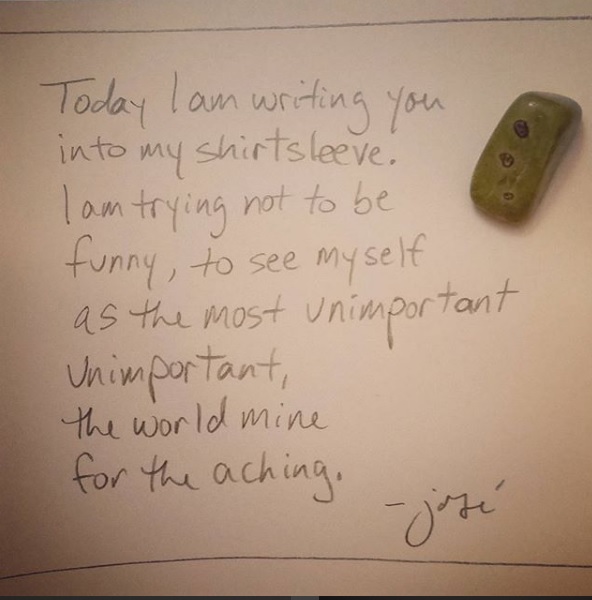 Today I am writing you
into my shirtsleeve.
I am trying not to be
funny, to see myself
as the most unimportant
unimportant,
the world mine
for the aching.
-josé